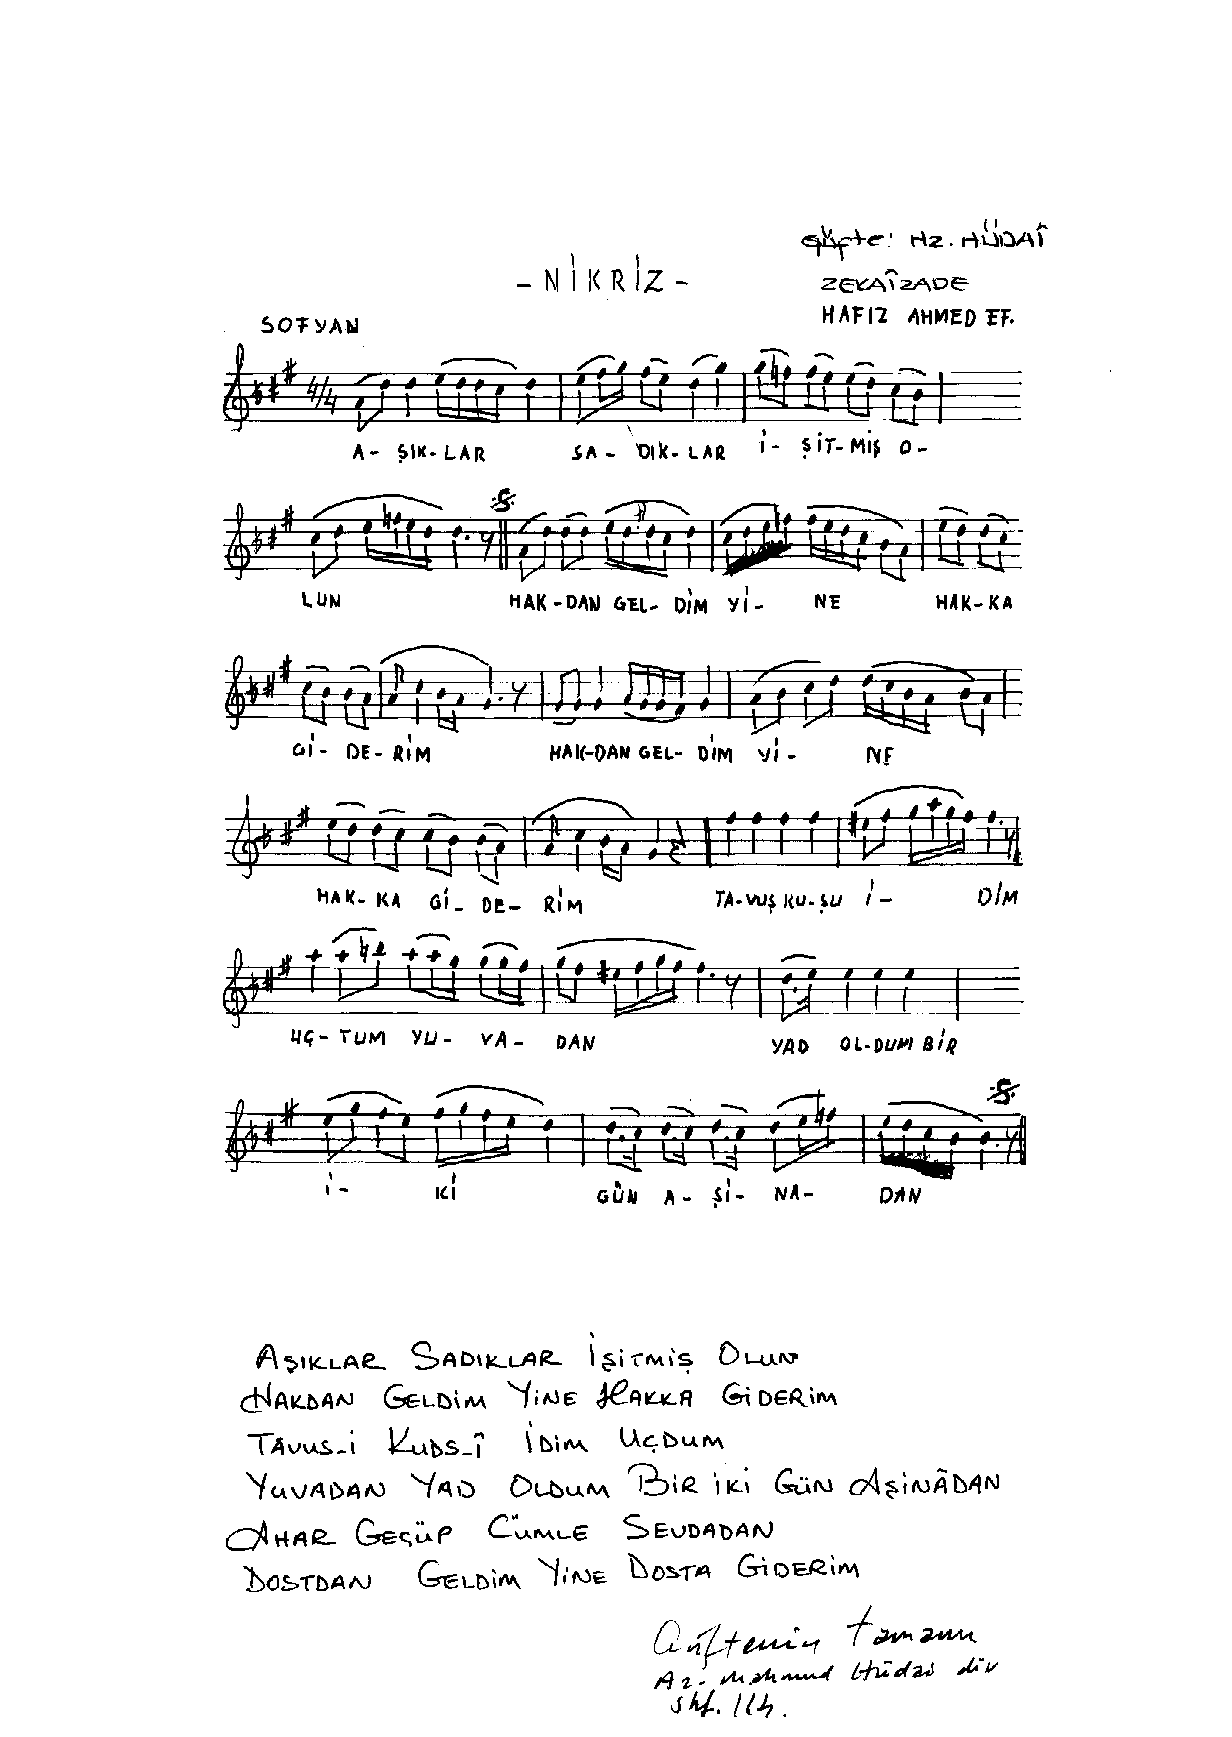 GÜFTE: HZ. HÜDAÎ
- NİKRİZ -
ZEKAÎZADE
SOFYAN
HAFIZ AHMED EF.
4/4
A- ŞIK- LAR SA- DIK- LAR İ- ŞİT- MİŞ O-
LUN HAK-DAN GEL- DİM Yİ- NE HAK-KA
Gİ- DE- RİM HAK-DAN GEL- DİM Yİ- NE
HAK- KA Gİ- DE- RİM TA-VUŞ KU-ŞU İ- DİM
UÇ- TUM YU- VA- DAN YAD OL-DUM BİR
İ- Kİ GÜN A- Şİ- NA- DAN
AŞIKLAR SADIKLAR İŞİTMİŞ OLUN
HAKDAN GELDİM YİNE HAKKA GİDERİM
TAVUS-İ KUDS-Î İDİM UÇDUM
YUVADAN YAD OLDUM BİR İKİ GÜN AŞİNÂDAN
AHAR GEÇÜP CÜMLE SEVDADAN
DOSTDAN GELDİM YİNE DOSTA GİDERİM
Güftenin tamamı
Az. Mahmud Hüdai div
shf. 114.